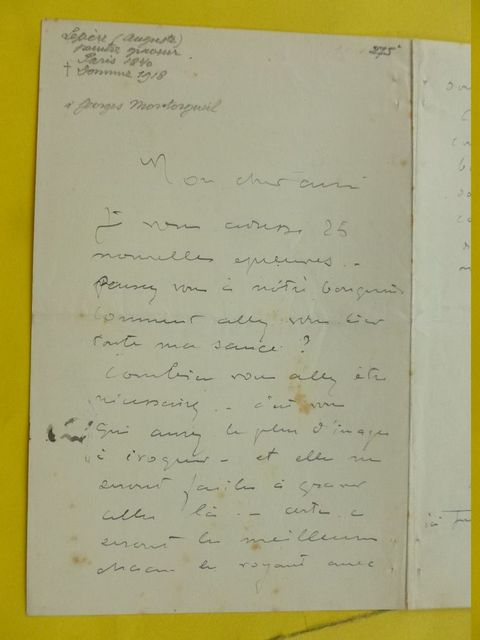 Lepère (Auguste)
peintre graveur
Paris 1840
† Domme 1918
275
à Georges Montorgueil
Mon cher ami
Je vous adresse 26
nouvelles épreuves.
Pensez vous à notre bouquin
comment allez vous lier
toute ma sauce ?
Combien vous allez être
nécessaire.. c'est vous
qui aurez le plus d'images
à évoquer - et elle ne
seront faciles à graver
celles là. -
seront les meilleures
chacun le voyant avec